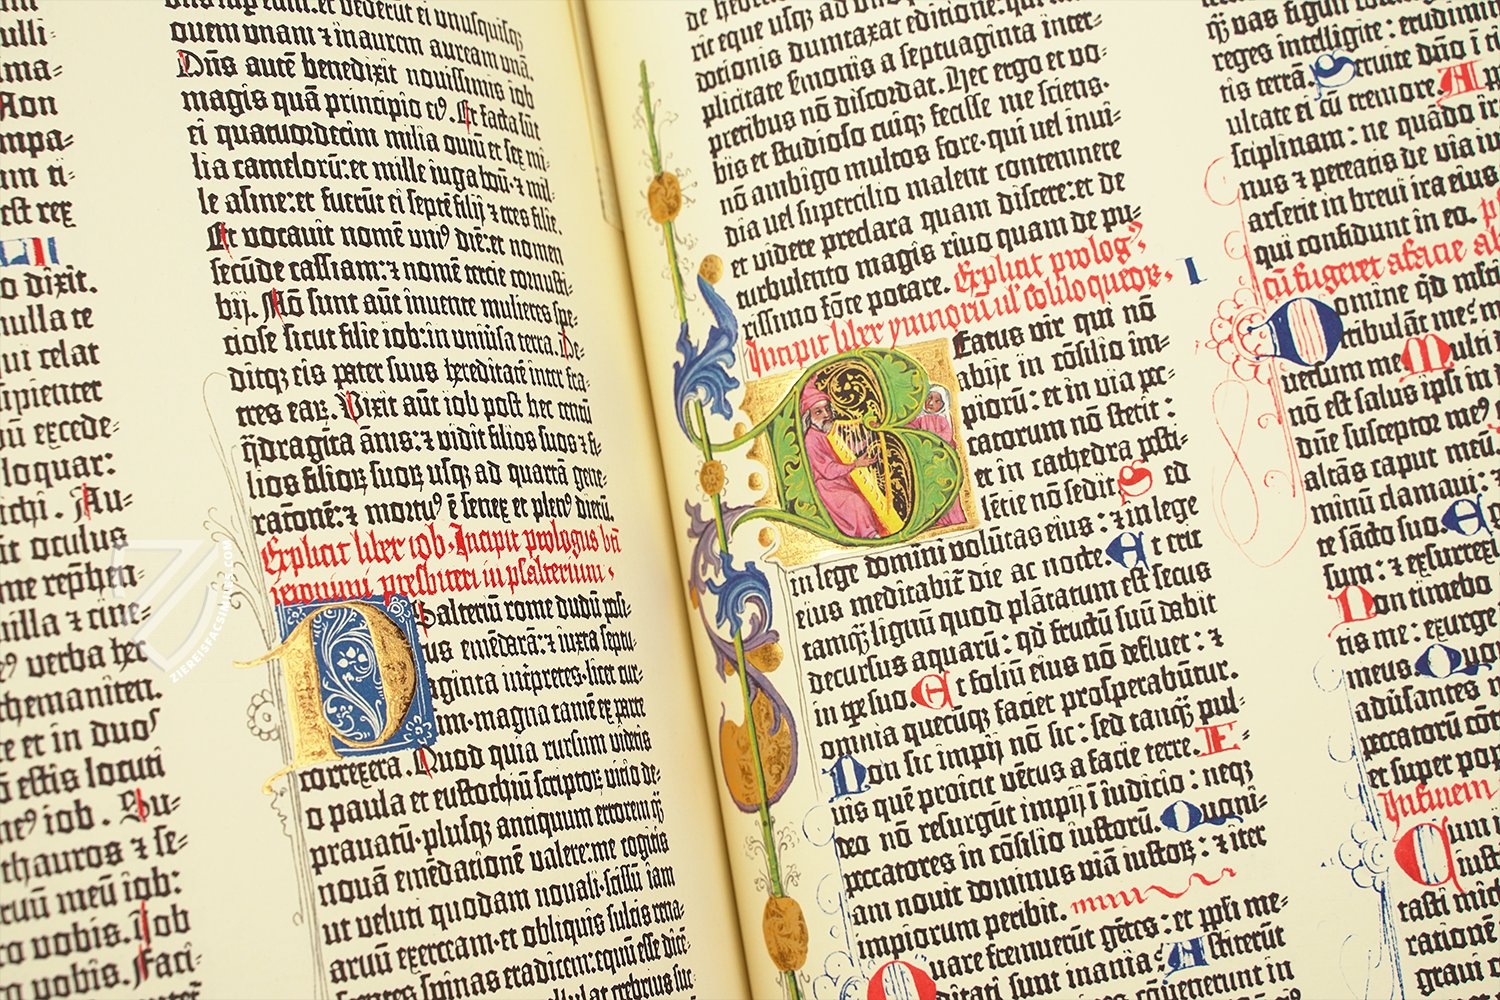 ulli-
ma-
Non
impa-
m ti-
est rex
o dixit.
nulla te
qui celat
sipienter
bū excede-
loquar:
ichi. Au-
it oculus
me rephen-
villa et cine-
verba hec
themaniten.
te et in duos
ō estis locuti
me⁹ iob. Su-
thauros ⁊ se-
ruū meū iob:
ro vobis. Iob
o vobis. Faci-
ouem unam ⁊ inaurem auream unā.
Dn̄s autē benedixit novissimis iob
magis quā principio ei⁹. Et facta sūt
ei quatuordecim milia ouiū et sex mi-
lia camelorū: et mille iuga boū: ⁊ mil-
le asine: et fuerūt ei septē filij ⁊ tres filie.
Et vocavit nomē uni⁹ diē: et nomen
secūde cassiam: ⁊ nomē tercie cornusti-
bij. Nō sunt aūt invente mulieres spe-
ciose sicut filie iob: in univsa terra. De-
ditq; eis pater suus hereditatē inter fra-
tres eaꝝ. Vixit aūt iob post hec centū
q̄dragīta ānis: ⁊ vidit filios suos ⁊ fi-
lios filioꝝ suoꝝ usq; ad quartā gene-
rationē: ⁊ mortu⁹ ē senex et plen⁹ dierū.
Explicit liber iob. Incipit prologus bti
ieronimi presbiteri in psalterium.
Psalteriū rome dudū posi-
tus emēdarā: ⁊ iuxta septu-
aginta int̄pretes. licet cur-
sim. magna tamē ex parte
correxera. Quod quia rursum videtis
o paula et eustochiū scriptoꝝ vicio de-
pravatū. plusq; antiquum errorem q̄
novā emēdationē valere: me cogitis
ut veluti quodam novali. scissū iam
arvū exerceam. et obliquis sulcis rena-
scentes spinas eradicem: equū esse dicē-
rit eque usq; ad
dotionis dumtaxat editione: qui
plicitate sermonis a septuaginta inter-
pretibus nō discordat. Hec ergo et vo-
bis et studioso cuiq; fecisse me sciens.
nō ambigo multos fore. qui vel invi-
dia vel supercilio malent contemnere
et videre preclara quam discere: et de
turbulento magis rivo quam de pu-
rissimo fōte potare. Explicit prolog⁹.
Incipit liber ymnorū ul' soliloquiorꝝ.
Beatus vir qui nō
abijt in cōsilio im-
piorū: et in via pec-
catorum nō stetit:
et in cathedra pesti-
lētie nō sedit. Sed
in lege domini volūtas eius: ⁊ in lege
eius meditabit̄ die ac nocte. Et erit
tamq; lignū quod plātatum est secus
decursus aquarū: qd fructū suū dabit
in tpe suo. Et foliū eius nō defluet: ⁊
omnia quecūq; faciet prosperabūtur.
Non sic impij nō sic: sed tamq; pul-
vis quē proicit vētus a facie terre. E-
deo nō resurgūt impij ī iudicio: neq;
pccatores in cōsilio iustorū. Quoni-
am novit dominus viā iustoꝝ: ⁊ iter
impiorum peribit.
Quare fremuerūt gētes: et ppli me-
ditati sunt inania: Astiterūt
I
reges intelligite: erudimini
tis terrā. Servite dn̄o ī ti
ultate ei cū tremore. Ap
sciplinam: ne quādo ir
nus ⁊ pereatis de via iu
arserit in brevi ira eius
qui confidunt in eo.
cū fugeret a facie a
Domine qd m
tribulāt me: m
versum me. Multi
nō est salus ipsi in
dn̄e susceptor me⁹
altās caput meū.
minū clamavi: ⁊
te sācto suo. Eg
sum: ⁊ exsurrexi
Non timebo
tis me: exurge
meus. Quon
adūsantes
pccatorū cōt
et super pop
ZIEREISFACSIMILES.COM